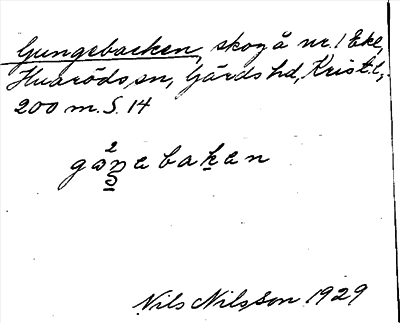 Gungebacken, skog å nr. 1 Eke,
Hvaröds sn, Gärds hd, Krist. l,
200 m. S. 14
gəŋebaken
Nils Nilsson 1929